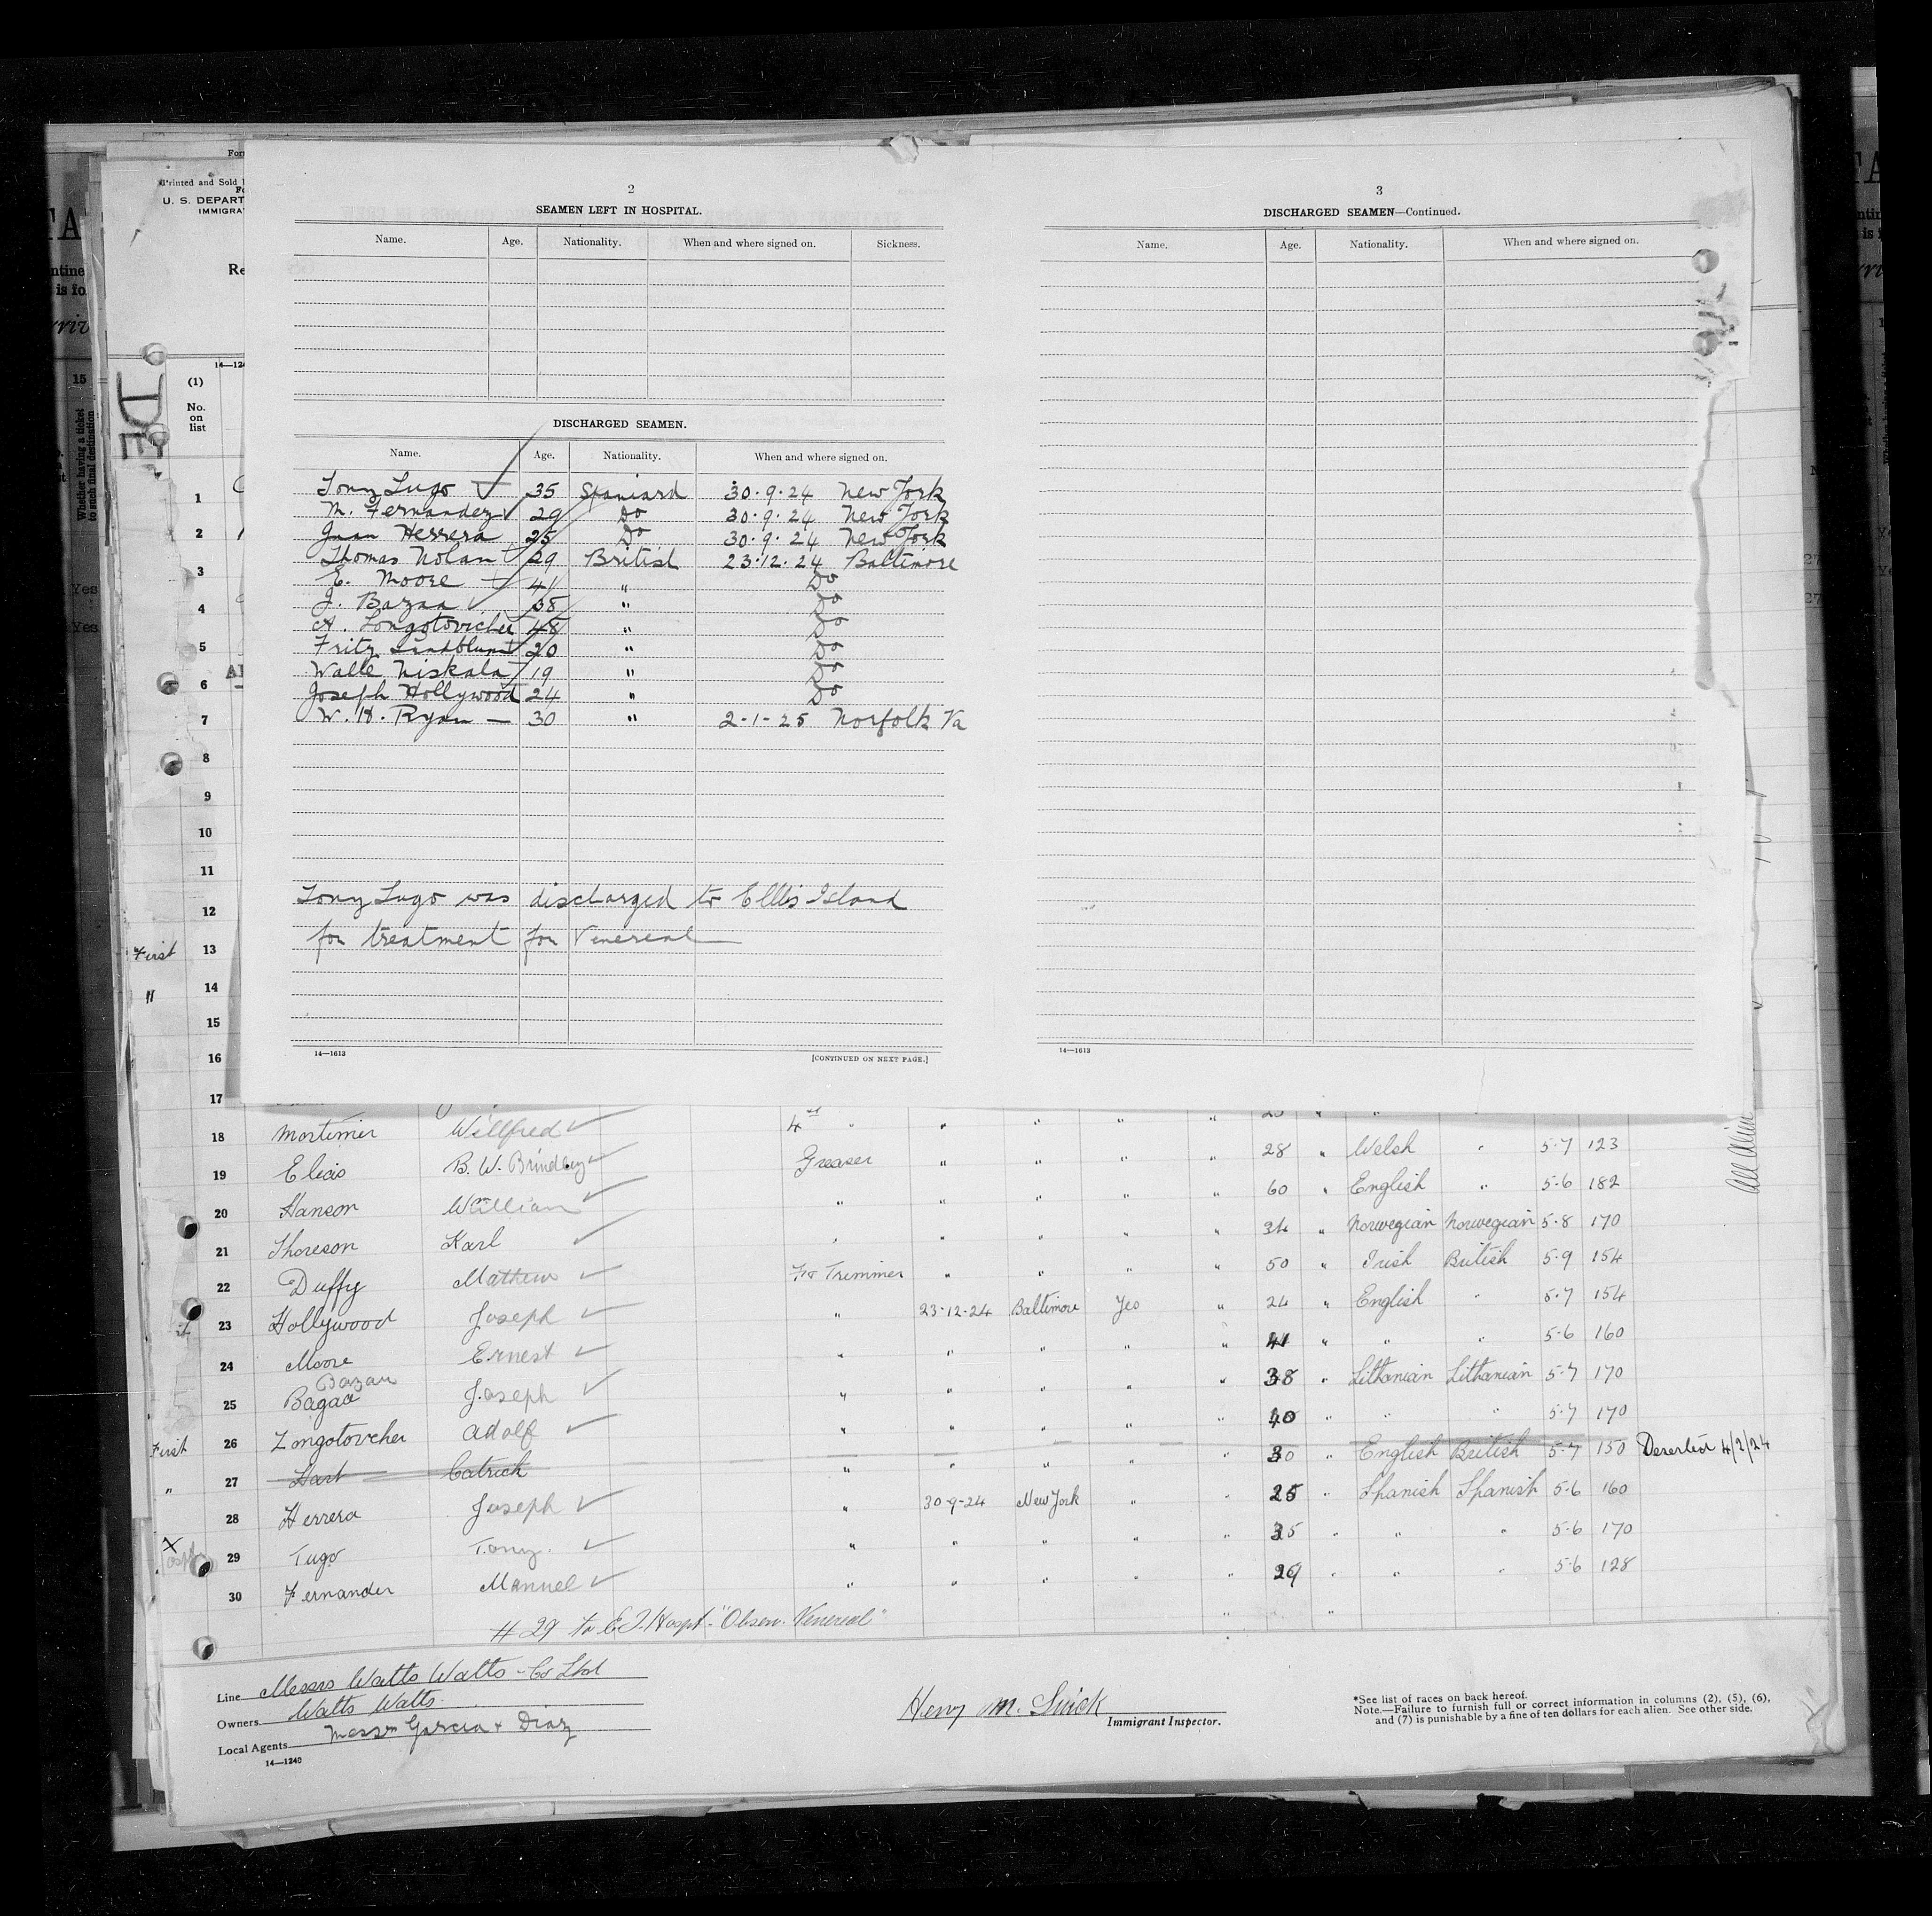 2
SEAMEN LEFT IN HOSPITAL.
Name. Age. Nationality. When and where signed on. Sickness.
DISCHARGED SEAMEN.
Name. Age. Nationality. When and where signed on.
Tony Lugo 35 Spaniard 30·9·24 New York
M. Fernandez 29 Do 30·9·24 New York
Juan Herrera 25 Do 30·9·24 New York
Thomas Nolan 29 British 23·12·24 Baltimore
E. Moore 41 " Do
J. Bazaa 38 " Do
A. Longotovicher 48 " Do
Fritz Sandblum 20 " Do
Walle Niskala 19 " Do
Joseph Hollywood 24 " Do
W. H. Ryan — 30 " 2-1-25 Norfolk Va
Tony Lugo was discharged to Ellis Island
for treatment for Venereal
14—1613 [CONTINUED ON NEXT PAGE.]
3
DISCHARGED SEAMEN—Continued.
Name. Age. Nationality. When and where signed on.
14—1613
Printed and Sold
U. S. DEPART
IMMIGRA
Re
(1)
No.
on
list
1
2
3
4
5
6
7
8
9
10
11
12
First 13
" 14
15
16
17
18 Mortimer Willfred 4th " " " " "
19 Elias B. W. Brindley Greaser " " " " 28 " Welsh " 5·7 123
20 Hanson William " " " " " 60 " English " 5·6 182
21 Thoreson Karl " " " " " 34 " Norwegian Norwegian 5·8 170
22 Duffy Mathew Fr Trimmer " " " " 50 " Irish British 5·9 154
23 Hollywood Joseph " 23-12-24 Baltimore Yes " 24 " English " 5·7 154
24 Moore Ernest " " " " " 41 " " " 5·6 160
Bazan
25 Bagaa Joseph " " " " " 38 " Lithanian Lithanian 5·7 170
First 26 Zongotovcher Adolf " " " " " 40 " " " 5·7 170
" 27 Hart Catrick " " " " " 30 " English British 5·7 150 Deserted 4/2/24
28 Herrera Joseph " 30-9-24 New York " " 25 " Spanish Spanish 5·6 160
X 29 Tugo Tony. " " " " " 35 " " " 5·6 170
30 Fernander Manuel " " " " " 29 " " " 5·6 128
# 29 to E.I. Hospt. "Obsen. Venereal"
Line Messrs Watts Watts - Co Ltd
Owners Watts Watts.
Local Agents Messrs Garcia + Diaz
14—1240
Henry M.
Immigrant Inspector.
*See list of races on back hereof.
Note.—Failure to furnish full or correct information in columns (2), (5), (6),
and (7) is punishable by a fine of ten dollars for each alien. See other side.
15
Whether having a ticket
to such final destination
Yes
Yes